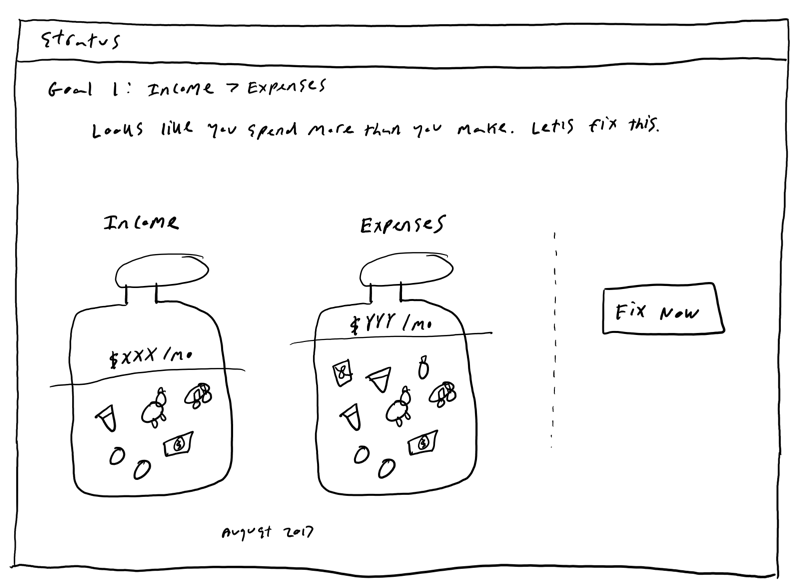 Stratus
Goal 1: Income > Expenses
Looks like you spend more than you make. Let's fix this.
Income
Expenses
$XXX /mo
$YYY /mo
$
$
Fix Now
August 2017